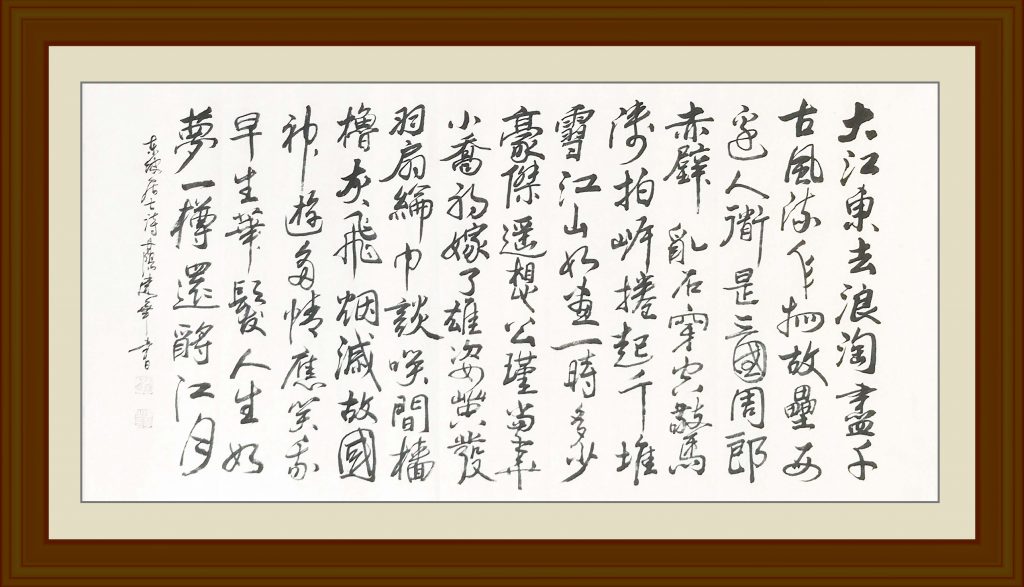 大江東去浪淘盡千
古風流人物故壘西
邊人衜是三國周郎
赤壁亂石穿空驚
濤拍岸捲起千堆
雪江山如畫一時多少
豪傑遥想公瑾當年
小喬初嫁了雄姿英發
羽扇綸巾談笑間檣
櫓灰飛烟滅故國
神遊多情應笑我
早生華髮人生如
夢一樽還酹江月
東坡居士詩 書